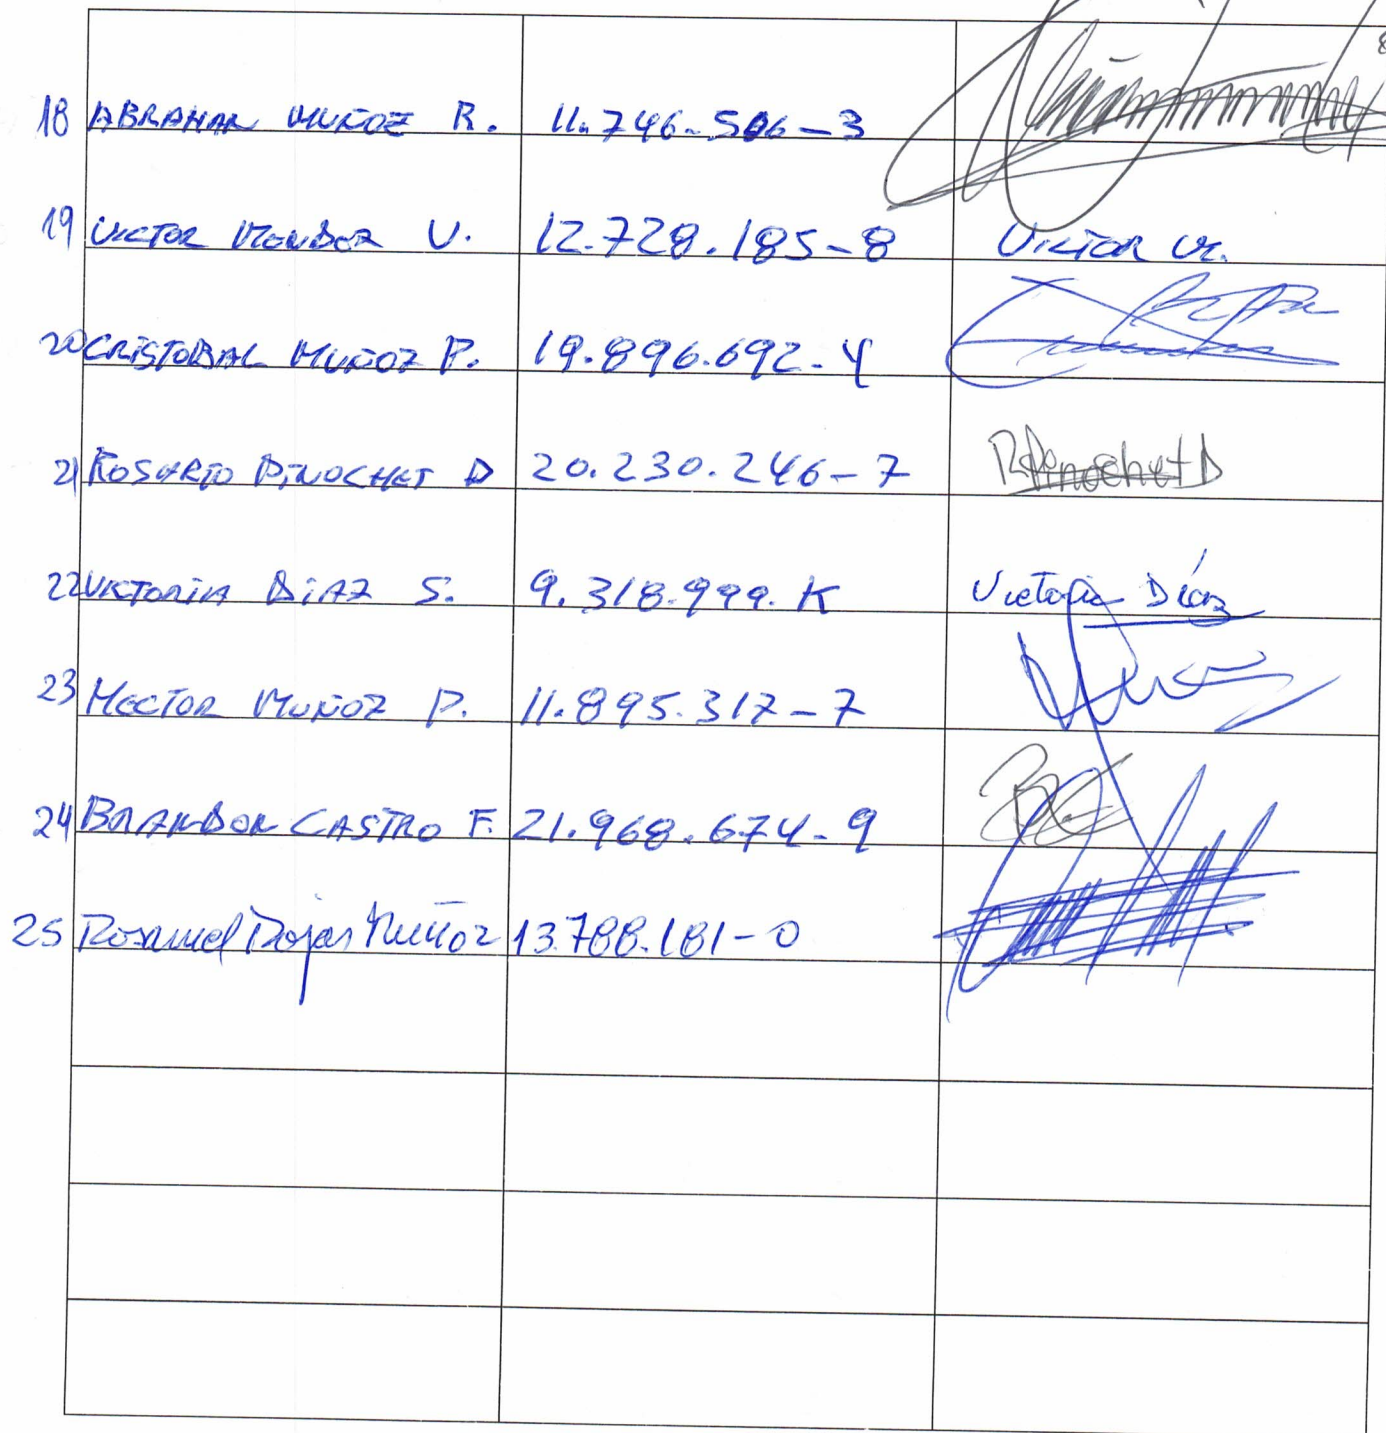 18 ABRAHAM MUÑOZ R. 11.746.506-3
19 VICTOR V. 12.728.185-8 VICTOR
20 CRISTOBAL MUÑOZ P. 19.896.692-4
21 ROSARIO PINOCHET D 20.230.246-7 RPinochetD
22 VICTORIA DiAZ S. 9.318.999.K Victoria Díaz
23 HECTOR MUÑOZ P. 11.895.317-7
24 BRANDON CASTRO F. 21.968.674-9
25 Rojas Muñoz 13.788.181-0